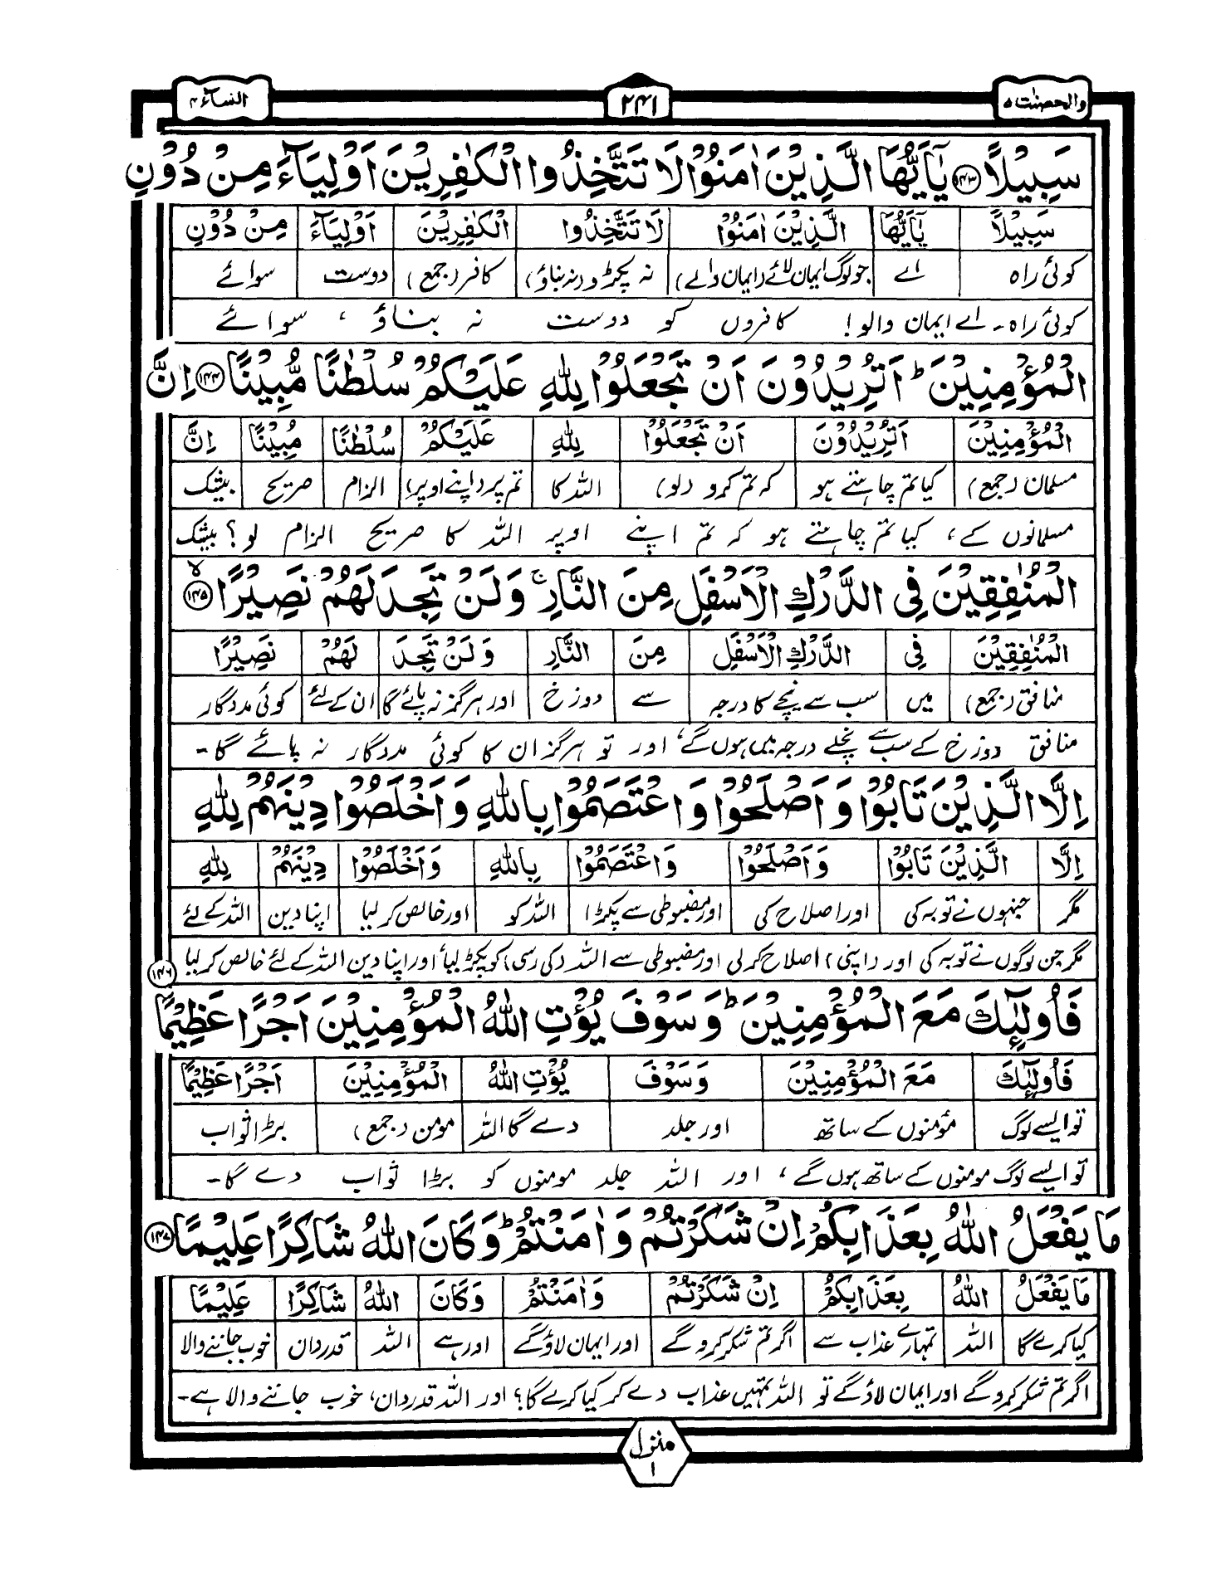 والمحصنٰت ۵
۲۴۱
النساء ۴
سَبِيْلًا ﴿۱۴۳﴾ يٰۤاَيُّهَا الَّذِيْنَ اٰمَنُوْا لَا تَتَّخِذُوا الْكٰفِرِيْنَ اَوْلِيَآءَ مِنْ دُوْنِ
سَبِيْلًا يٰۤاَيُّهَا الَّذِيْنَ اٰمَنُوْا لَا تَتَّخِذُوا الْكٰفِرِيْنَ اَوْلِيَآءَ مِنْ دُوْنِ
کوئی راہ اے جو لوگ ایمان لائے (ایمان والے) نہ پکڑو (نہ بناؤ) کافر (جمع) دوست سوائے
کوئی راہ۔ اے ایمان والو! کافروں کو دوست نہ بناؤ ، سوائے
الْمُؤْمِنِيْنَ ؕ اَتُرِيْدُوْنَ اَنْ تَجْعَلُوْا لِلّٰهِ عَلَيْكُمْ سُلْطٰنًا مُّبِيْنًا ﴿۱۴۴﴾ اِنَّ
الْمُؤْمِنِيْنَ اَتُرِيْدُوْنَ اَنْ تَجْعَلُوْا لِلّٰهِ عَلَيْكُمْ سُلْطٰنًا مُّبِيْنًا اِنَّ
مسلمان (جمع) کیا تم چاہتے ہو کہ تم کرو (لو) اللہ کا تم پر (اپنے اوپر) الزام صریح بیشک
مسلمانوں کے، کیا تم چاہتے ہو کہ تم اپنے اوپر اللہ کا صریح الزام لو؟ بیشک
الْمُنٰفِقِيْنَ فِى الدَّرْكِ الْاَسْفَلِ مِنَ النَّارِ ۚ وَلَنْ تَجِدَ لَهُمْ نَصِيْرًا ۙ﴿۱۴۵﴾
الْمُنٰفِقِيْنَ فِى الدَّرْكِ الْاَسْفَلِ مِنَ النَّارِ وَلَنْ تَجِدَ لَهُمْ نَصِيْرًا
منافق (جمع) میں سب سے نیچے کا درجہ سے دوزخ اور ہرگز نہ پائے گا ان کے لئے کوئی مددگار
منافق دوزخ کے سب سے نچلے درجہ میں ہوں گے، اور تو ہرگز ان کا کوئی مددگار نہ پائے گا۔
اِلَّا الَّذِيْنَ تَابُوْا وَاَصْلَحُوْا وَاعْتَصَمُوْا بِاللّٰهِ وَاَخْلَصُوْا دِيْنَهُمْ لِلّٰهِ
اِلَّا الَّذِيْنَ تَابُوْا وَاَصْلَحُوْا وَاعْتَصَمُوْا بِاللّٰهِ وَاَخْلَصُوْا دِيْنَهُمْ لِلّٰهِ
مگر جنہوں نے توبہ کی اور اصلاح کی اور مضبوطی سے پکڑا اللہ کو اور خالص کر لیا اپنا دین اللہ کے لئے
مگر جن لوگوں نے توبہ کی اور (اپنی) اصلاح کر لی اور مضبوطی سے اللہ (کی رسی) کو پکڑ لیا، اور اپنا دین اللہ کے لئے خالص کر لیا
فَاُولٰٓئِكَ مَعَ الْمُؤْمِنِيْنَ ؕ وَسَوْفَ يُؤْتِ اللّٰهُ الْمُؤْمِنِيْنَ اَجْرًا عَظِيْمًا ﴿۱۴۶﴾
فَاُولٰٓئِكَ مَعَ الْمُؤْمِنِيْنَ وَسَوْفَ يُؤْتِ اللّٰهُ الْمُؤْمِنِيْنَ اَجْرًا عَظِيْمًا
تو ایسے لوگ مؤمنوں کے ساتھ اور جلد دے گا اللہ مومن (جمع) بڑا ثواب
تو ایسے لوگ مومنوں کے ساتھ ہوں گے، اور اللہ جلد مومنوں کو بڑا ثواب دے گا۔
مَا يَفْعَلُ اللّٰهُ بِعَذَابِكُمْ اِنْ شَكَرْتُمْ وَاٰمَنْتُمْ ؕ وَكَانَ اللّٰهُ شَاكِرًا عَلِيْمًا ﴿۱۴۷﴾
مَا يَفْعَلُ اللّٰهُ بِعَذَابِكُمْ اِنْ شَكَرْتُمْ وَاٰمَنْتُمْ وَكَانَ اللّٰهُ شَاكِرًا عَلِيْمًا
کیا کرے گا اللہ تمہارے عذاب سے اگر تم شکر کرو گے اور ایمان لاؤ گے اور ہے اللہ قدردان خوب جاننے والا
اگر تم شکر کرو گے اور ایمان لاؤ گے تو اللہ تمہیں عذاب دے کر کیا کرے گا؟ اور اللہ قدردان، خوب جاننے والا ہے۔
منزل
۱